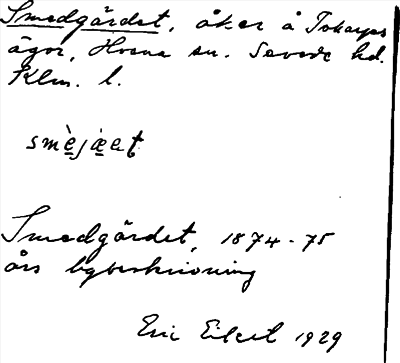 Smedgärdet, åker å Tokarps
ägor, Horna sn. Sevede hd.
Klm. l.
smèjæet
Smedgärdet, 1874-75
års bybeskrivning
Eric Eckert 1929